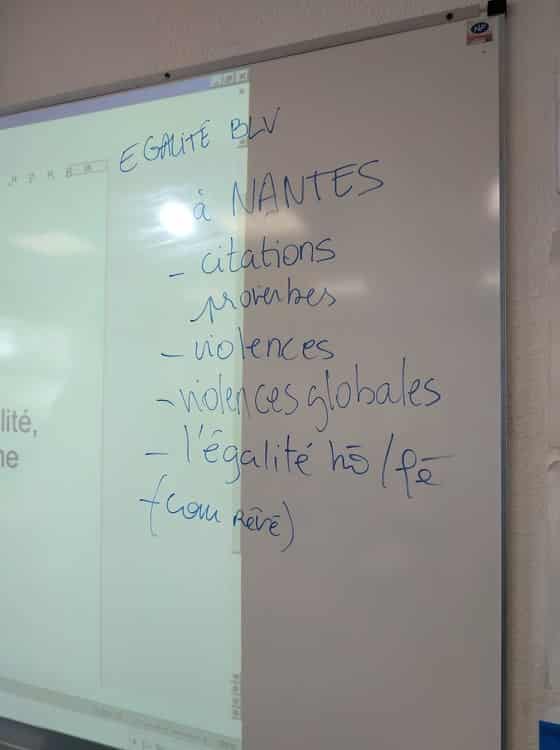 EGALITÉ BLV
à NANTES
- citations
proverbes
- violences
- violences globales
- l'égalité hō / fē
lité,
ne